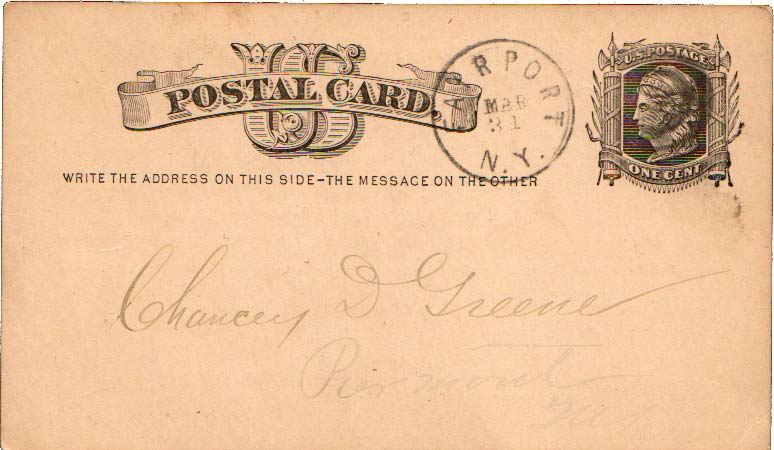 US
POSTAL CARD.
FAIRPORT
MAR
31
N.Y.
U.S. POSTAGE
ONE CENT
WRITE THE ADDRESS ON THIS SIDE-THE MESSAGE ON THE OTHER
Chancey D Greene
Piermont